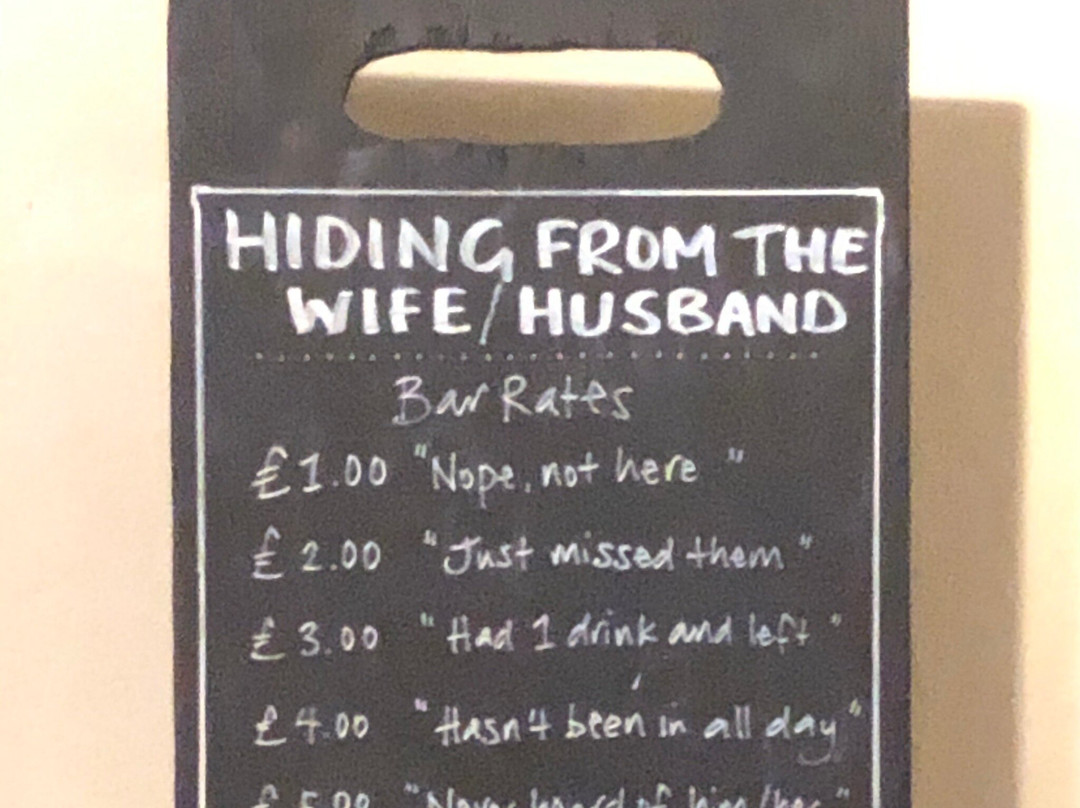 HIDING FROM THE
WIFE/HUSBAND
Bar Rates
£1.00 "Nope, not here "
£ 2.00 "Just missed them"
£ 3.00 "Had 1 drink and left"
£ 4.00 "Hasn't been in all day"
£ 5.00 "Never heard of him/her"